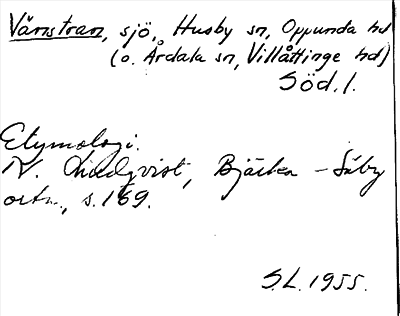 Vårnstran, sjö, Husby sn, Oppunda hd
(o. Årdala sn, Villåttinge hd)
Söd. l.
Etymologi.
N. Lindqvist, Bjärka-Säby
ortn., s. 169.
S.L. 1955.